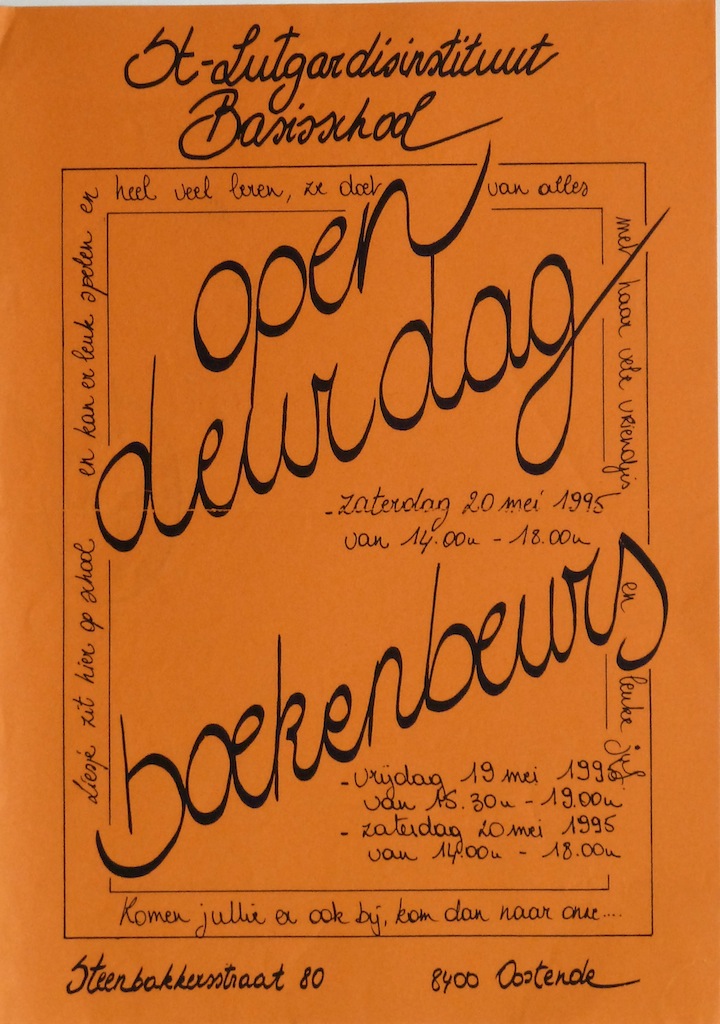 St-Lutgardisinstituut
Basisschool
Liesje zit hier op school en kan er leuk spelen en
heel veel leren, ze doet van alles
met haar vele vriendjes en leuke juf.
open
deurdag
- zaterdag 20 mei 1995
van 14.00u - 18.00u
boekenbeurs
- vrijdag 19 mei 1995
van 15.30u - 19.00u
- zaterdag 20 mei 1995
van 14.00u - 18.00u
Komen jullie er ook bij, kom dan naar onze....
Steenbakkersstraat 80 8400 Oostende